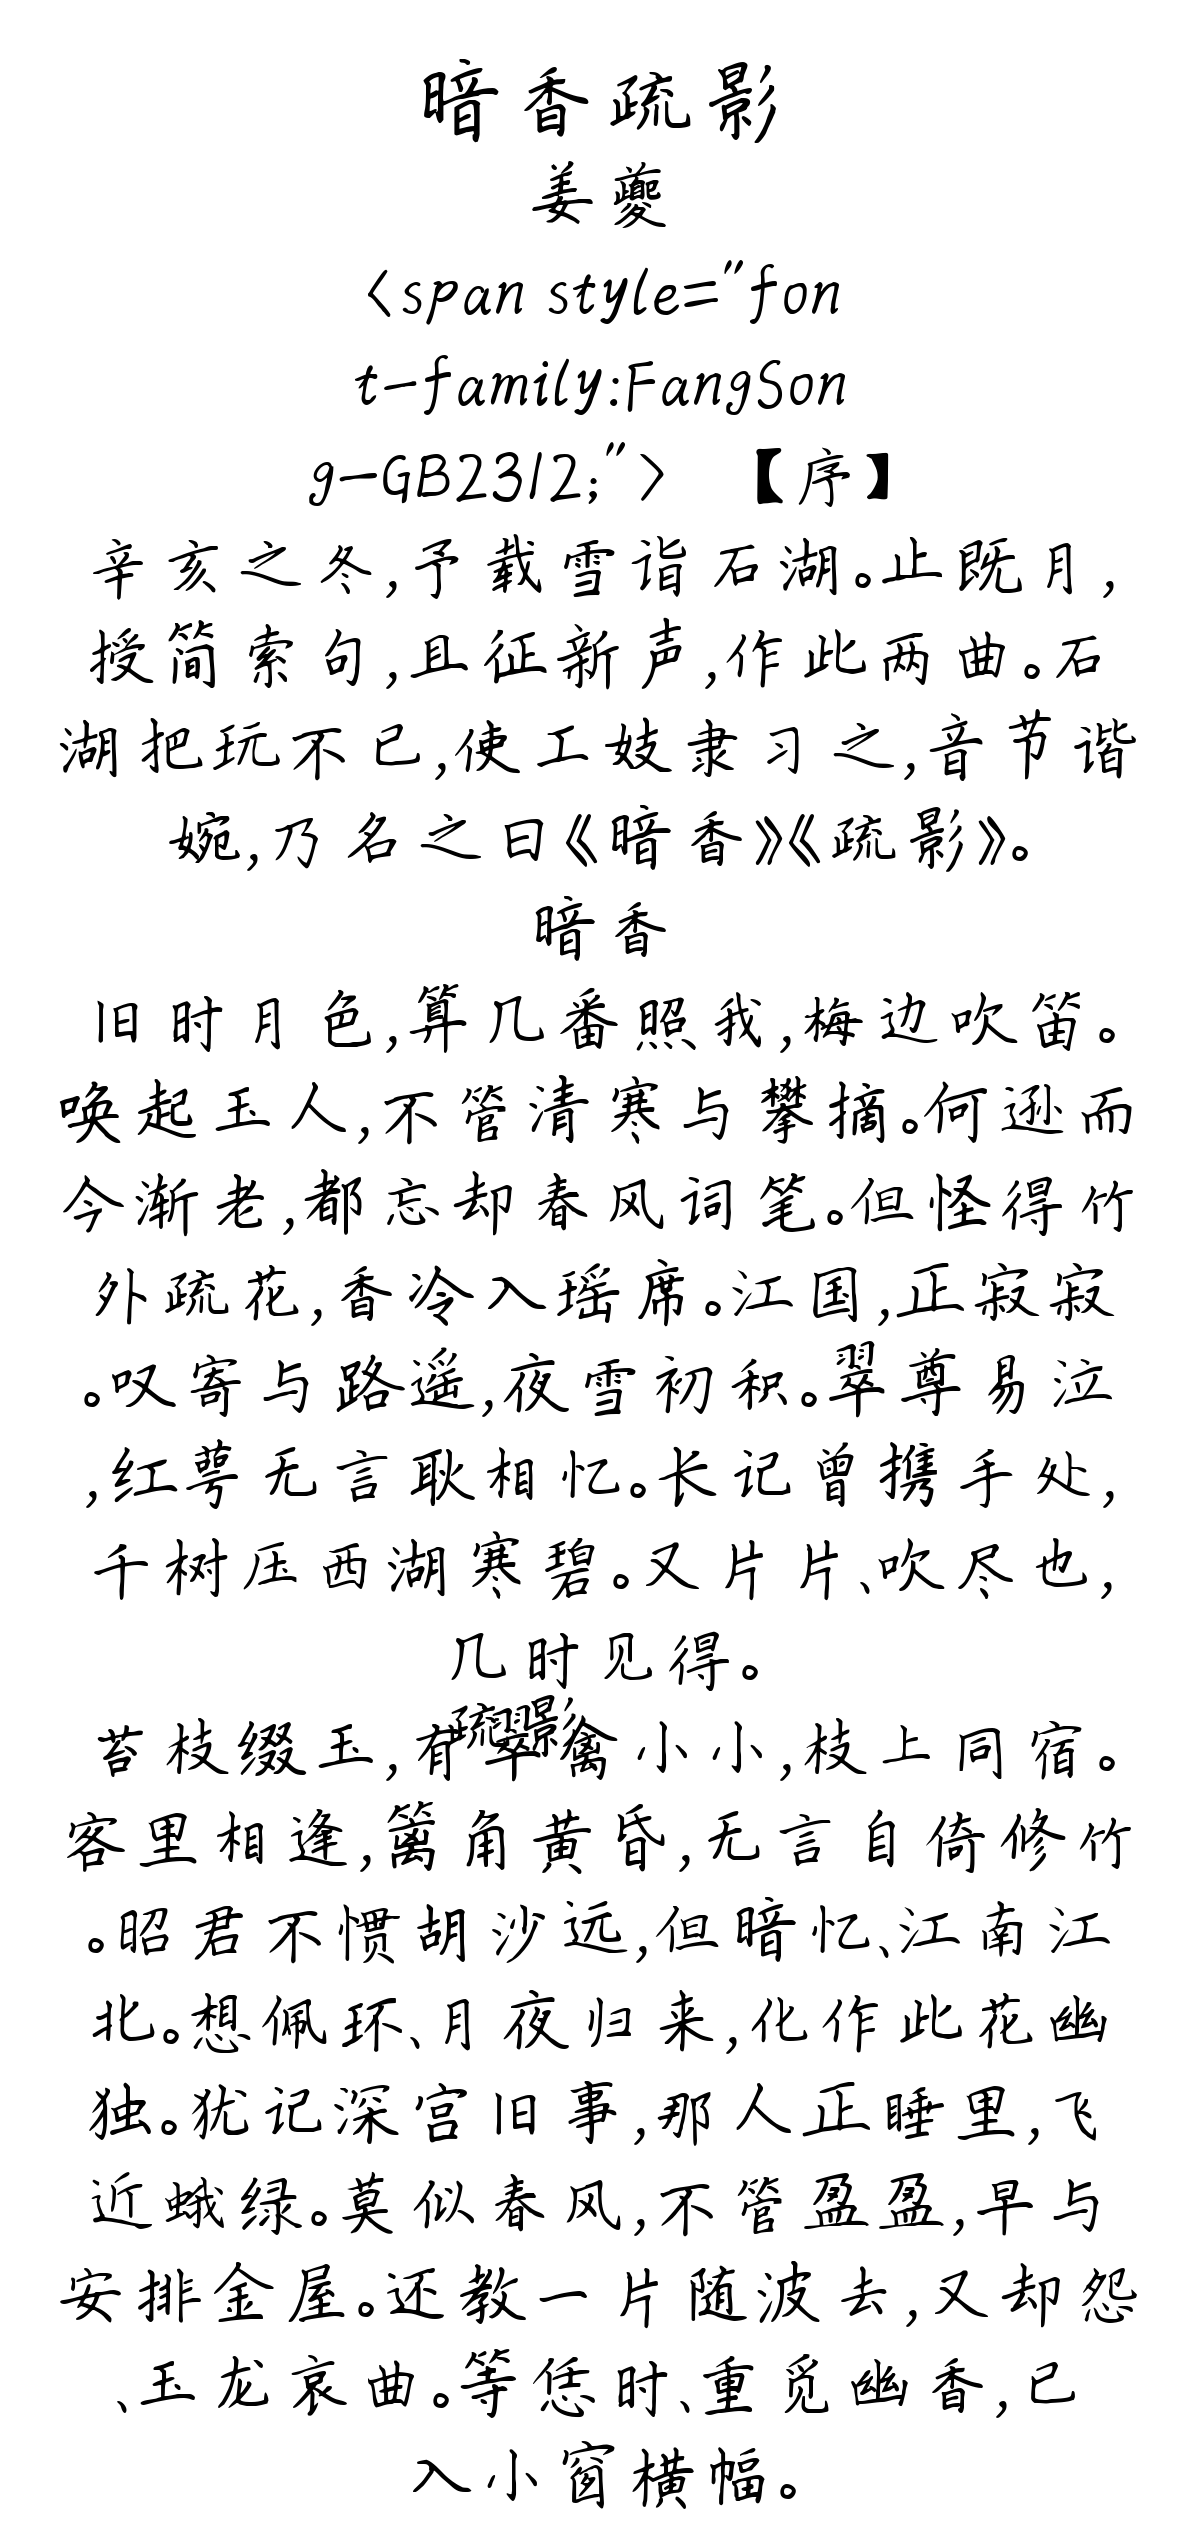 暗香疏影
姜夔
<span style="fon
t-family:FangSon
g-GB2312;"> 【序】
辛亥之冬,予载雪诣石湖。止既月,
授简索句,且征新声,作此两曲。石
湖把玩不已,使工妓隶习之,音节谐
婉,乃名之曰《暗香》《疏影》。
暗香
旧时月色,算几番照我,梅边吹笛。
唤起玉人,不管清寒与攀摘。何逊而
今渐老,都忘却春风词笔。但怪得竹
外疏花,香冷入瑶席。江国,正寂寂
。叹寄与路遥,夜雪初积。翠尊易泣
,红萼无言耿相忆。长记曾携手处,
千树压西湖寒碧。又片片、吹尽也,
几时见得。
疏影
苔枝缀玉,有翠禽小小,枝上同宿。
客里相逢,篱角黄昏,无言自倚修竹
。昭君不惯胡沙远,但暗忆、江南江
北。想佩环、月夜归来,化作此花幽
独。犹记深宫旧事,那人正睡里,飞
近蛾绿。莫似春风,不管盈盈,早与
安排金屋。还教一片随波去,又却怨
、玉龙哀曲。等恁时、重觅幽香,已
入小窗横幅。